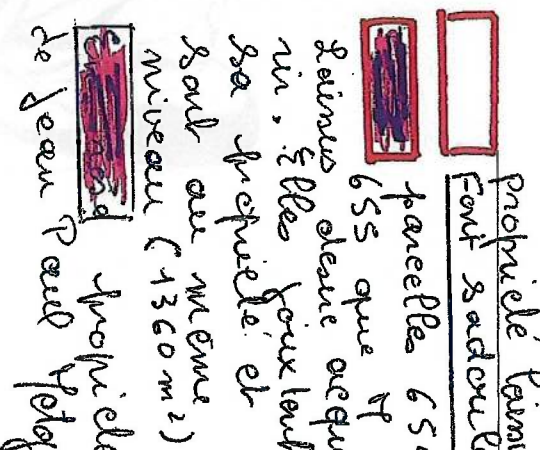 Propriété Lainus
Font sadoul
parcelles 654
655 que Y
Lainus desire acqu
rir. Elles jouxtent
sa propriété et
sont au même
niveau (1360 m²)
propriété
de Jean Paul